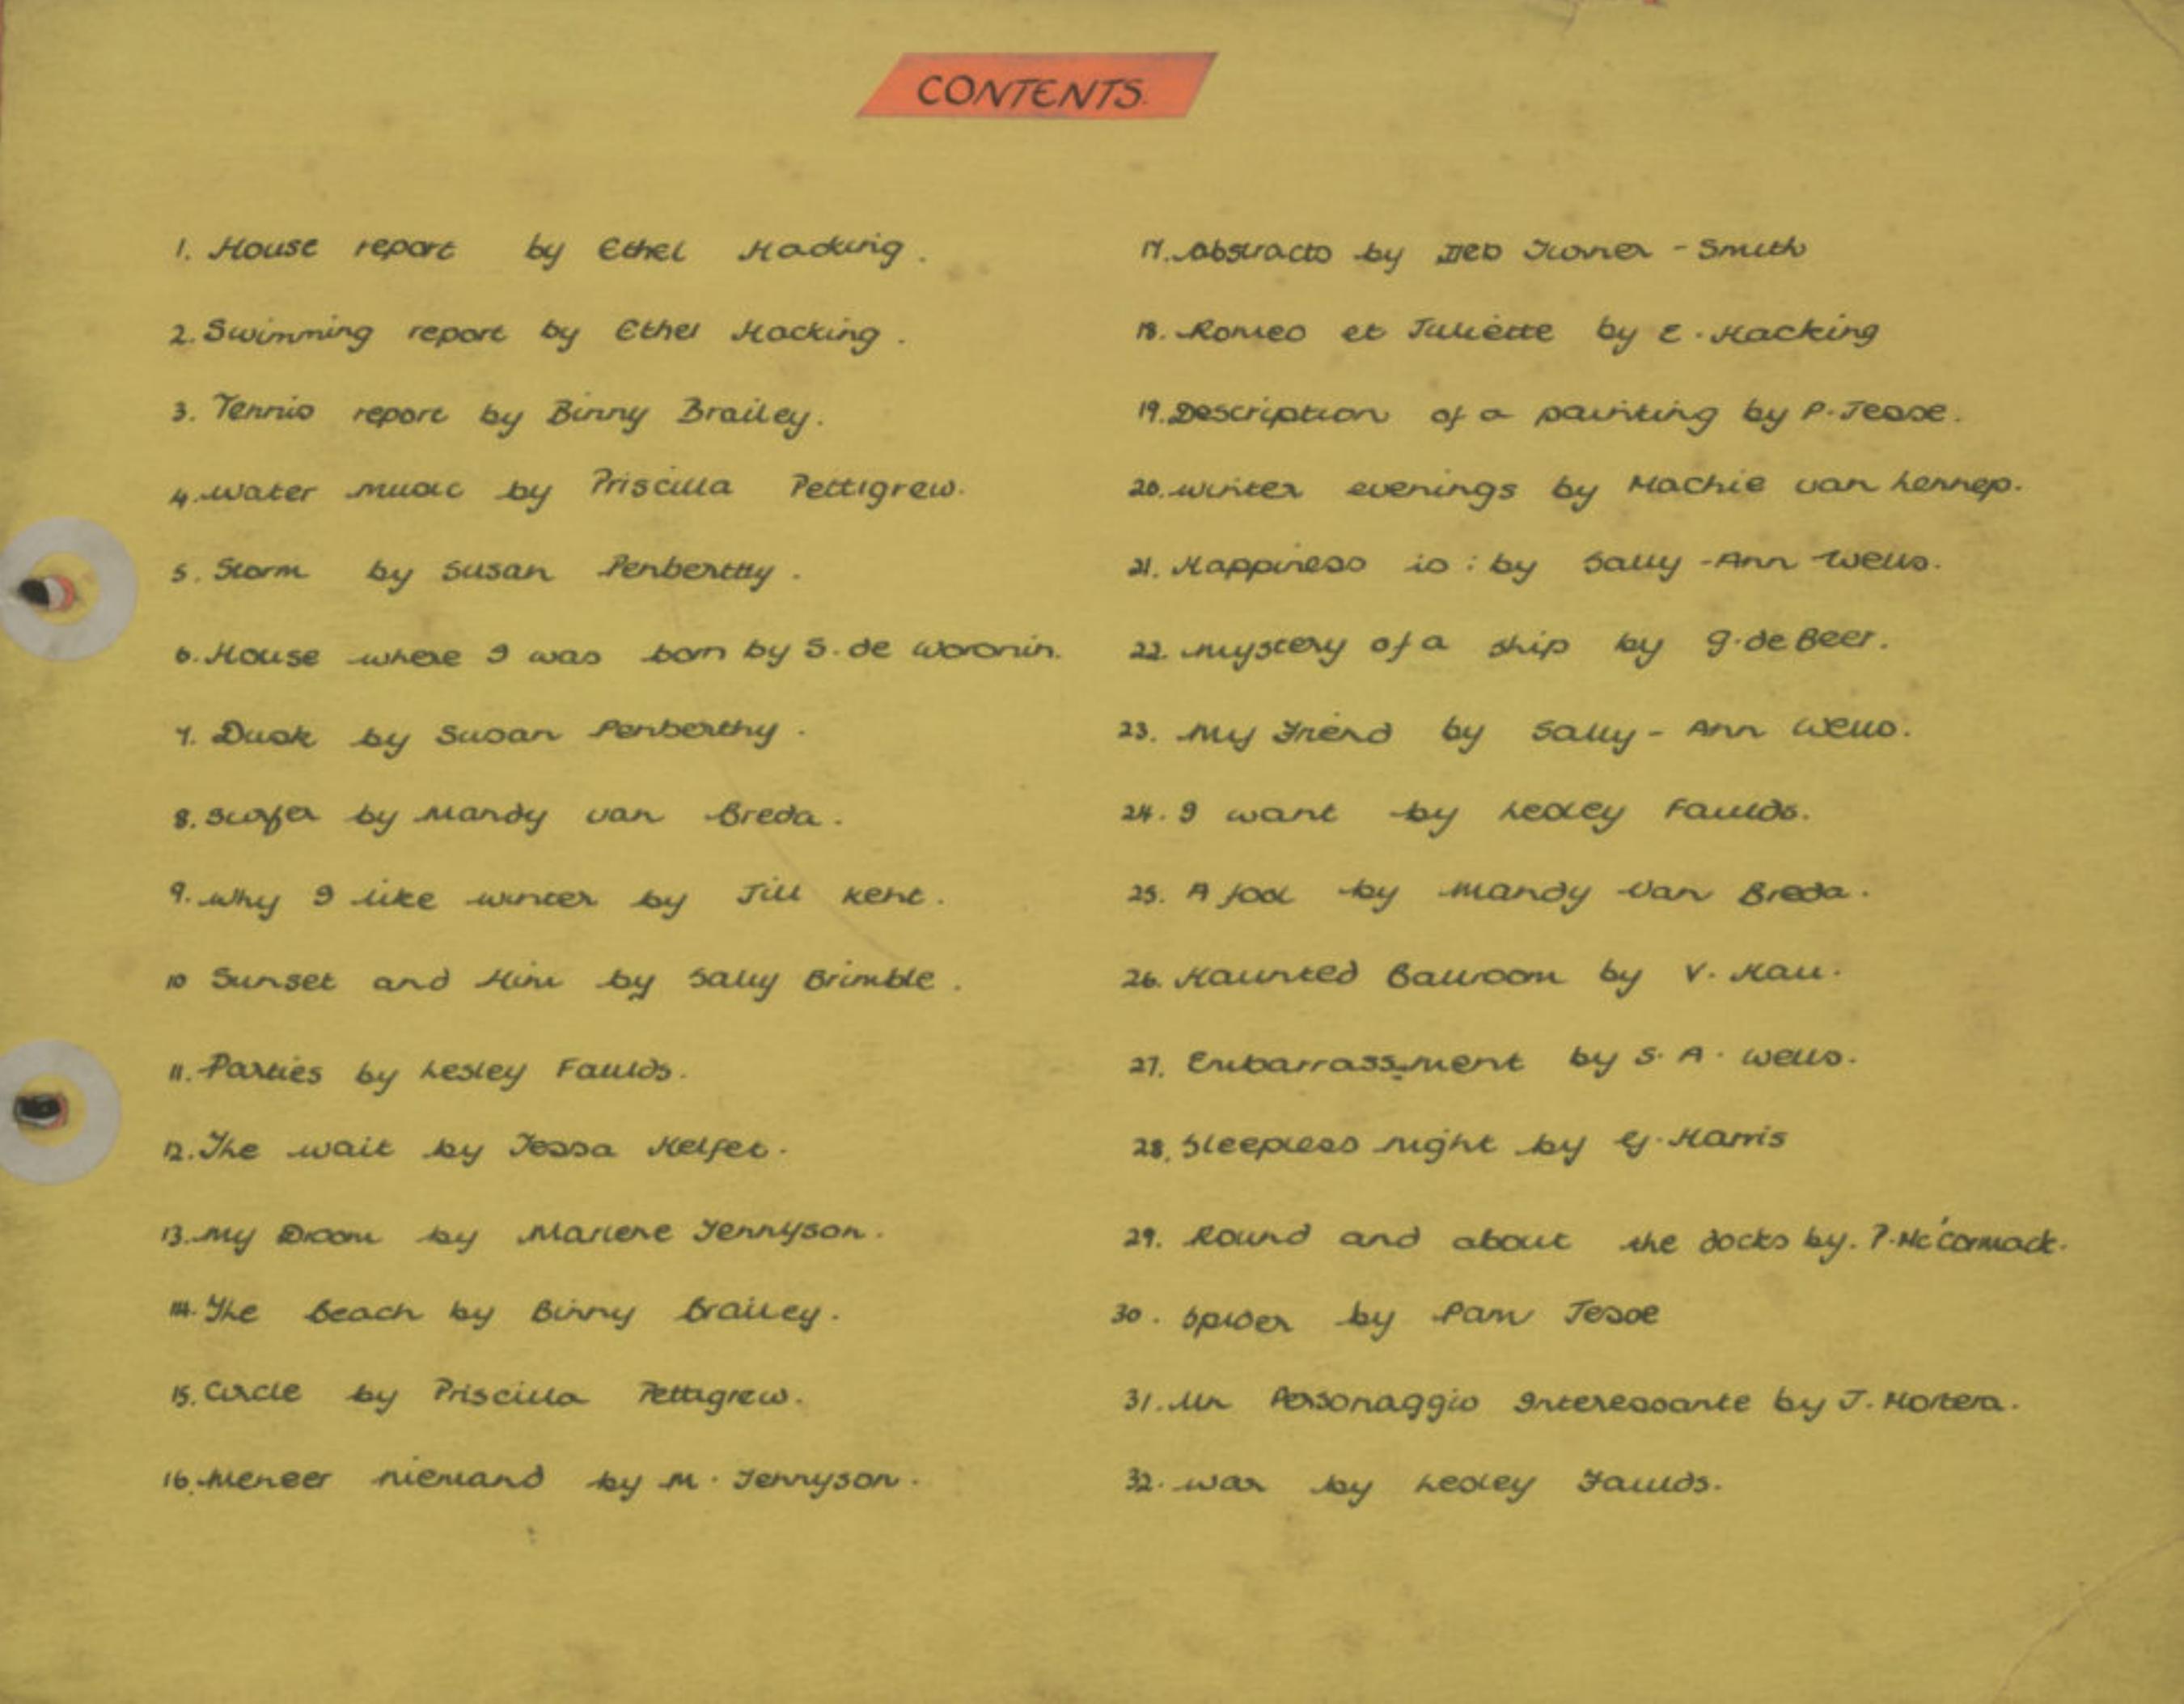 CONTENTS.
1. House report by Ethel Hacking.
2. Swimming report by Ethel Hacking.
3. Tennis report by Binny Brailey.
4. Water music by Priscilla Pettigrew.
5. Storm by Susan Penberthy.
6. House where I was born by S. de Woronin.
7. Dusk by Susan Penberthy.
8. Surfer by Mandy van Breda.
9. Why I like winter by Jill Kent.
10 Sunset and Him by Sally Brimble.
11. Parties by Lesley Faulds.
12. The wait by Tessa Helfet.
13. My Droom by Marlene Tennyson.
14. The Beach by Binny Brailey.
15. Circle by Priscilla Pettigrew.
16. Meneer niemand by M. Tennyson.
17. Abstracto by Deb - Smith
18. Romeo et Juliette by E. Hacking
19. Description of a painting by P. Jesse.
20. Winter evenings by Machie van Lennep.
21. Happiness is: by Sally-Ann Wells.
22. Mystery of a ship by G. de Beer.
23. My Friend by Sally-Ann Wells.
24. I want by Lesley Faulds.
25. A fool by Mandy Van Breda.
26. Haunted Ballroom by V. Hall.
27. Embarrassment by S. A. Wells.
28. Sleepless night by G. Harris
29. Round and about the docks by. P. Mc'Cormack.
30. Spider by Pam Jesse
31. Un Personaggio Interessante by J. Mortera.
32. War by Lesley Faulds.